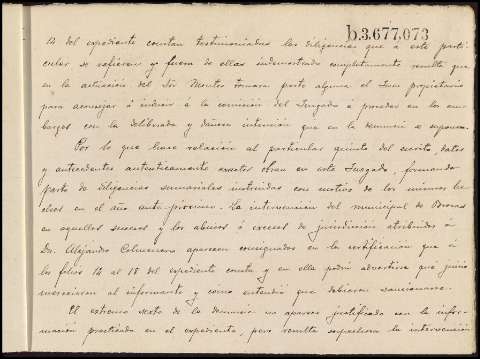 b.3.677,073
14 del expediente constan testimoniadas las diligencias que á este parti-
cular se refieren y fuera de ellas indemostrado completamente resulta que
en la actuación del Sor Montes tomara parte alguna el Juez propietario
para aconsejar ó inducir á la comisión del Juzgado á proceder en los em-
bargos con la deliberada y dañosa intención que en la denuncia se supone.
Por lo que hace relación al particular quinto del escrito, datos
y antecedentes autenticamente exactos obran en este Juzgado, formando
parte de diligencias sumariales instruidas con motivo de los mismos he-
chos en el año ante-próximo. La intervención del municipal de
en aquellos sucesos y los abusos ó excesos de jurisdicción atribuidos á
Dn. Alejandro Colmenero aparecen consignados en la certificación que á
los folios 14 al 18 del expediente consta y en ella podrá advertirse qué juicio
merecieron al informante y como entendió que debieran sancionarse.
El extremo sexto de la denuncia no aparece justificado con la infor-
mación practicada en el expediente, pero resulta la intervención